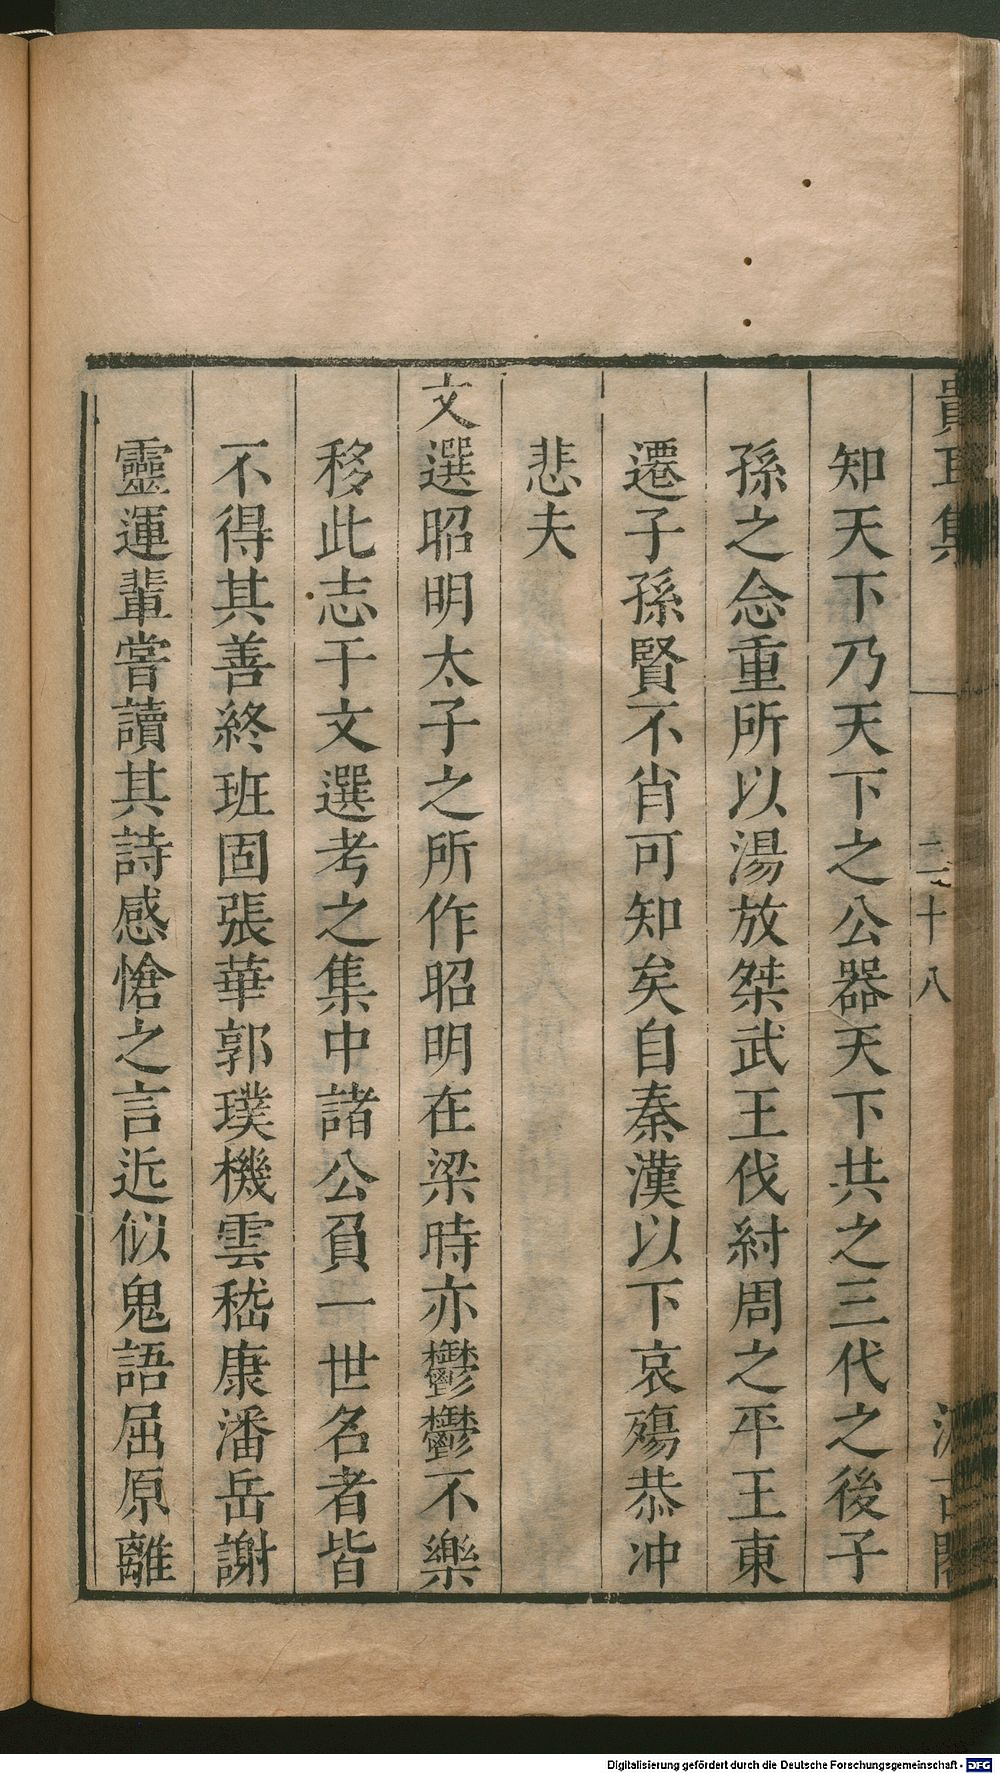 貴耳集 二十八 汲古閣
知天下乃天下之公器天下共之三代之後子
孫之念重所以湯放桀武王伐紂周之平王東
遷子孫賢不肖可知矣自秦漢以下哀殤恭冲
悲夫
文選昭明太子之所作昭明在梁時亦鬱鬱不樂
移此志于文選考之集中諸公負一世名者皆
不得其善終班固張華郭璞機雲嵇康潘岳謝
靈運輩嘗讀其詩感愴之言近似鬼語屈原離
Digitalisierung gefördert durch die Deutsche Forschungsgemeinschaft - DFG